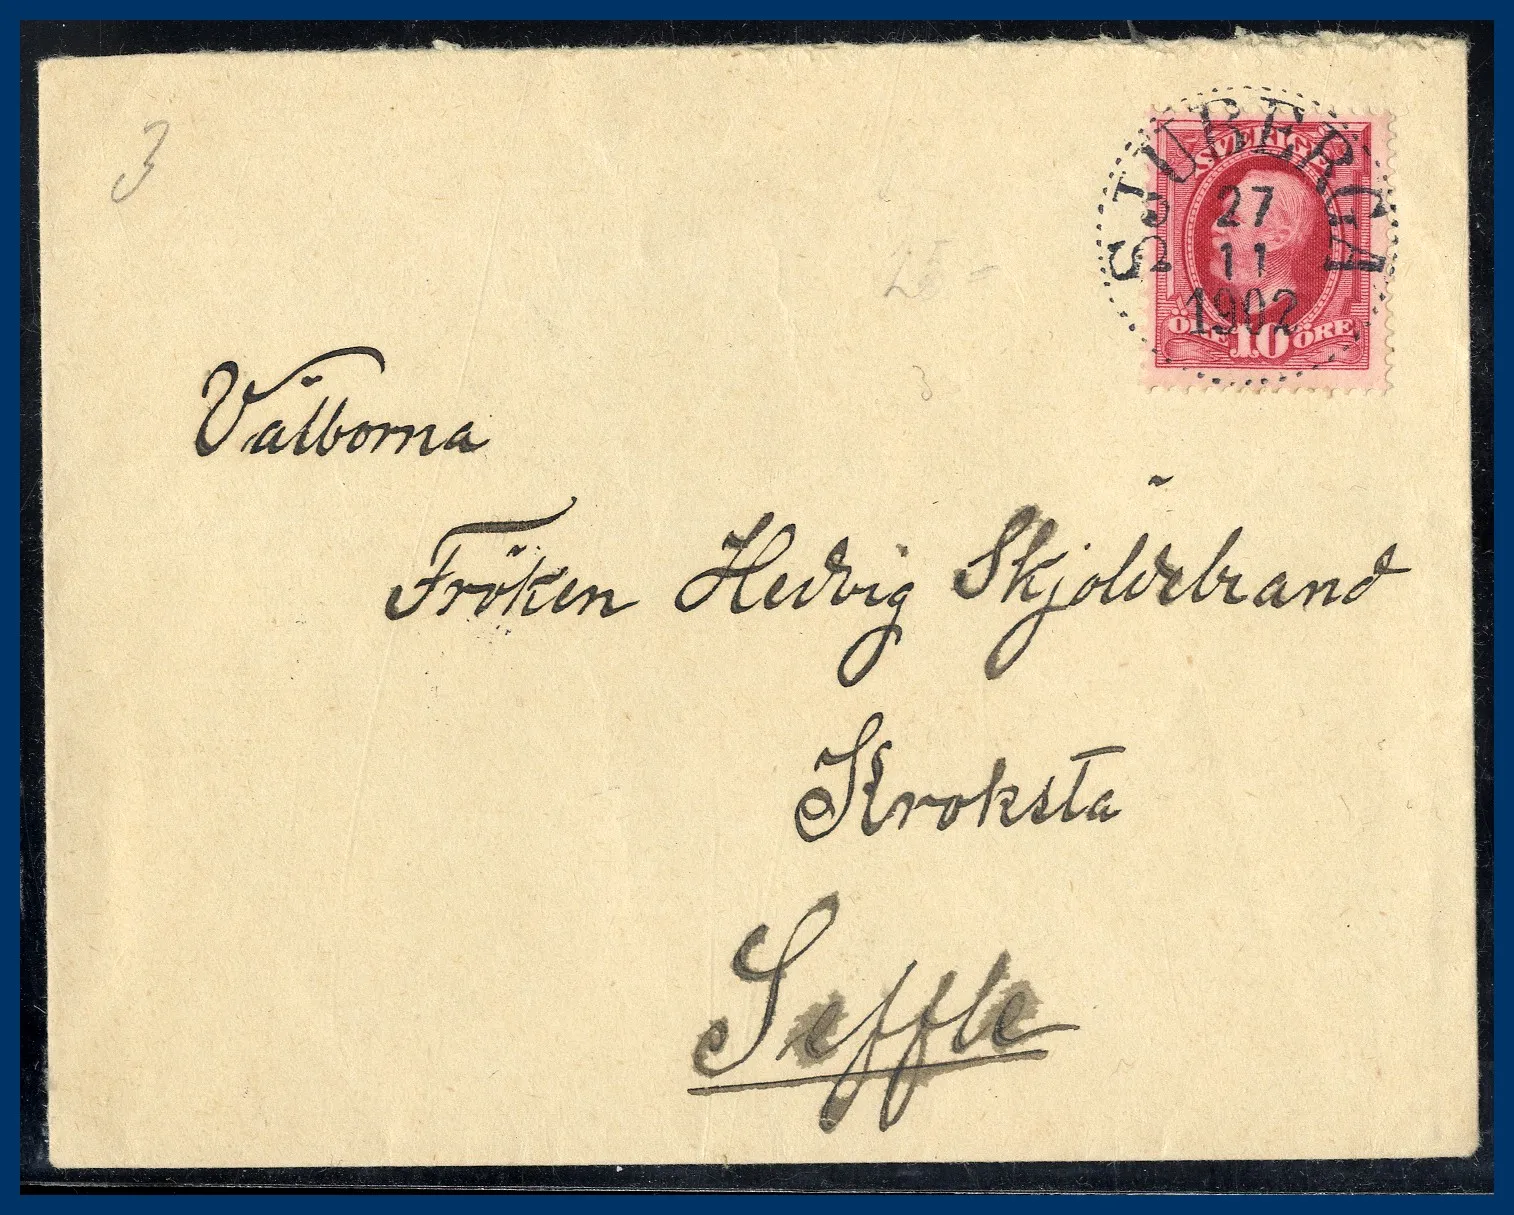 3
SJUBERGA
27
11
1902
SVERIGE
ÖRE 10 ÖRE
25-
3
Välborna
Fröken Hedvig Skjöldebrand
Kroksta
Seffle